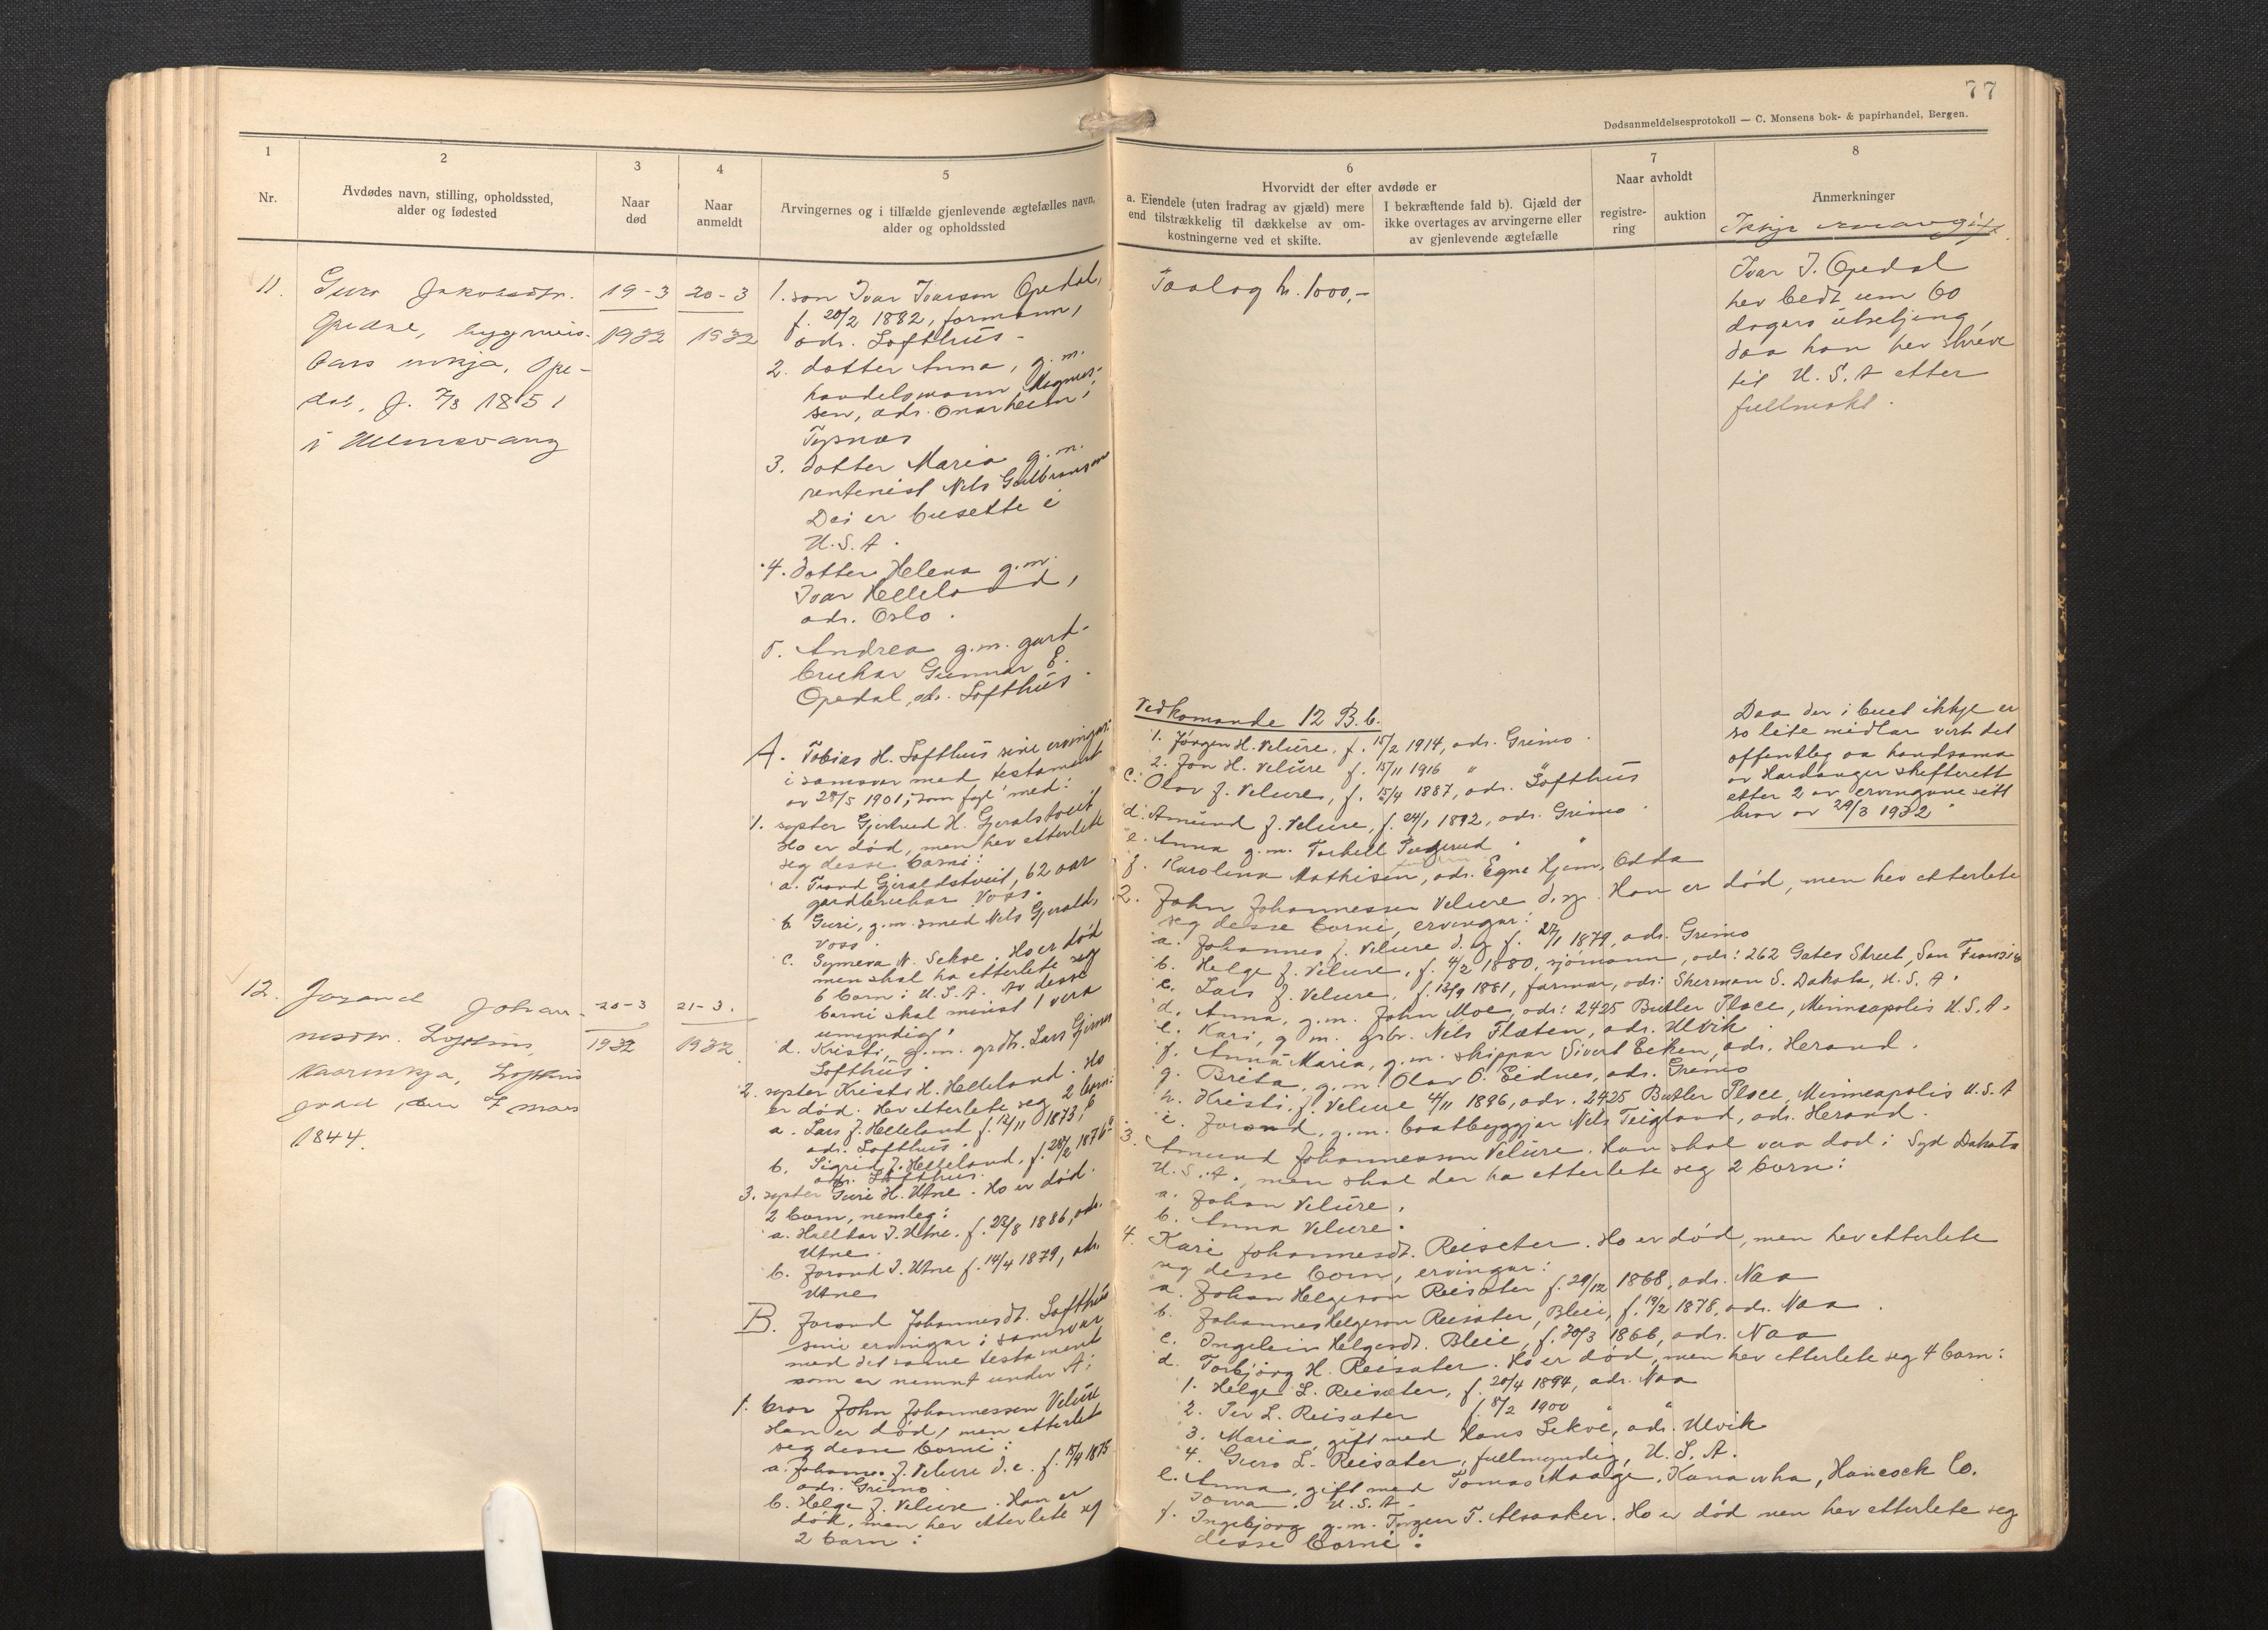 77
Dødsanmeldelsesprotokoll — C. Monsens bok- & papirhandel, Bergen.
1
Nr.
2
Avdødes navn, stilling, opholdssted,
alder og fødested
3
Naar
død
4
Naar
anmeldt
5
Arvingernes og i tilfælde gjenlevende ægtefælles navn,
alder og opholdssted
6
Hvorvidt der efter avdøde er
a. Eiendele (uten fradrag av gjæld) mere
end tilstrækkelig til dækkelse av om-
kostningerne ved et skifte.
I bekræftende fald b). Gjæld der
ikke overtages av arvingerne eller
av gjenlevende ægtefælle
7
Naar avholdt
registre-
ring
auktion
8
Anmerkninger
Ikkje
11.
Guro Jakobsdtr.
Opedal, byggmeis-
tars enkja, Ope-
dal, f. 7/3 1851
i Ullensvang
19-3
1932
20-3
1932
1. son Ivar Ivarson Opedal,
f. 20/2 1882, formann,
adr. Lofthus.
2. dotter Anna, g.m.
handelsmann Magnus-
sen, adr. Onarheim,
Tysnes
3. dotter Maria g.m.
rentenist Nils Gulbranson
Dei er busette i
U.S.A.
4. dotter Helena g.m.
Ivar Helleland,
adr. Oslo.
5. Andrea g.m. gard-
brukar Gunnar E.
Opedal, adr. Lofthus.
Taalag kr. 1000,-
Ivar I. Opedal
hev bedt um 60
dagars utsetjing,
daa han hev skreve
til U.S.A etter
fullmakt.
12.
Jorand Johan-
nesdtr. Lofthus,
kaarenkja, Lofthus
fødd den 7 mars
1844.
20-3
1932
21-3.
1932.
A. Tobias H. Lofthus sine ervingar:
i samsvar med testament
av 28/5 1901, som fylgj med:
1. syster Gjertrud H. Gjeraldstveit
Ho er død, men hev etterlete
seg desse borni:
a. Trond Gjeraldstveit, 62 aar
gardbrukar Voss.
b. Guri, g.m. smed Nils Gjeralds,
Voss.
c. Synneva N. Sekse. Ho er død
men skal ha etterlete seg
6 born i U.S.A. Av desse
borni skal minst 1 vera
umyndig.
d. Kristi, g.m. grdb. Lars Gjernes
Lofthus.
2. syster Kristi H. Helleland. Ho
er død. Hev etterlete seg 2 born:
a. Lars J. Helleland f. 12/11 1873,
adr. Lofthus.
b. Sigrid J. Helleland, f. 28/2 1876
adr. Lofthus.
3. syster Guri H. Utne. Ho er død.
2 born, nemleg:
a. Halldor I. Utne. f. 23/8 1886, adr.
Utne.
b. Jorand I. Utne f. 14/4 1879, adr.
Utne
B. Jorand Johannesdt. Lofthus
sine ervingar i samsvar
med det same testament
som er nemnt under A:
1. bror John Johannessen Velure
Han er død, men etterlet
seg desse borni:
a. Johannes J. Velure d.e. f. 15/9 1875
adr. Grimo.
b. Helge J. Velure. Han er
død, men hev etterlete seg
2 born:
Vedkomande 12 B.b.
1. Jørgen H. Velure, f. 15/2 1914, adr. Grimo.
2. Jon H. Velure f. 15/11 1916 " "
c. Olav J. Velure, f. 15/4 1887, adr. Lofthus
d. Amund J. Velure, f. 24/1 1892, adr. Grimo.
e. Anna g.m. Torkell " "
f. Karolina Mathisen, adr. Egne Hjem, Odda
2. John Johannessen Velure d.y. Han er død, men hev etterlete
seg desse borni, ervingar:
a. Johannes J. Velure d.y. f. 27/1 1879, adr. Grimo
b. Helge J. Velure, f. 4/2 1880, sjømann, adr: 262 Gates Street, San Fransisco
c. Lars J. Velure, f. 13/9 1881, farmar, adr: Sherman S. Dakota, U.S.A.
d. Anna, g.m. John Moe, adr: 2425 Butler Place, Minneapolis U.S.A.
e. Kari, g.m. grbr. Nils Flæten, adr. Ulvik.
f. Anna Maria, g.m. skippar Sivert Eeken, adr. Herand.
g. Brita, g.m. Olav O. Eidnes, adr. Grimo
h. Kristi J. Velure 4/11 1896, adr. 2425 Butler Place, Minneapolis U.S.A
i. Jorand, g.m. baatbyggjar Nils Teigland, adr. Herand.
3. Amund Johannesson Velure. Han skal vera død i Syd Dakota
U.S.A., men skal der ha etterlete seg 2 born:
a. Johan Velure.
b. Anna Velure.
4. Kari Johannesdt. Reiseter. Ho er død, men hev etterlete
seg desse born, ervingar:
a. Johan Helgeson Reisæter f. 29/12 1868, adr. Naa
b. Johannes Helgeson Reisæter, Bleie, f. 19/2 1878, adr. Naa.
c. Ingeleiv Helgesdt. Bleie, f. 30/3 1866, adr. Naa
d. Torbjørg H. Reisæter. Ho er død, men hev etterlete seg 4 born:
1. Helge L. Reisæter, f. 20/4 1894, adr. Naa
2. Per L. Reisæter f. 8/2 1900 " "
3. Maria, gift med Hans Sekse, adr. Ulvik
4. Guro L. Reisæter, fullmyndig, U.S.A.
e. Anna, gift med Tomas Maage, Kanawha, Hancock Co.
Iowa. U.S.A.
f. Ingebjørg g.m. Torgeir T. Alsaaker. Ho er død men hev etterlete seg
desse borni:
Daa der i buet ikkje er
so lite midlar vert det
offentleg aa handsama
av Hardanger skifterett
etter 2 av ervingane sitt
brev av 29/3 1932